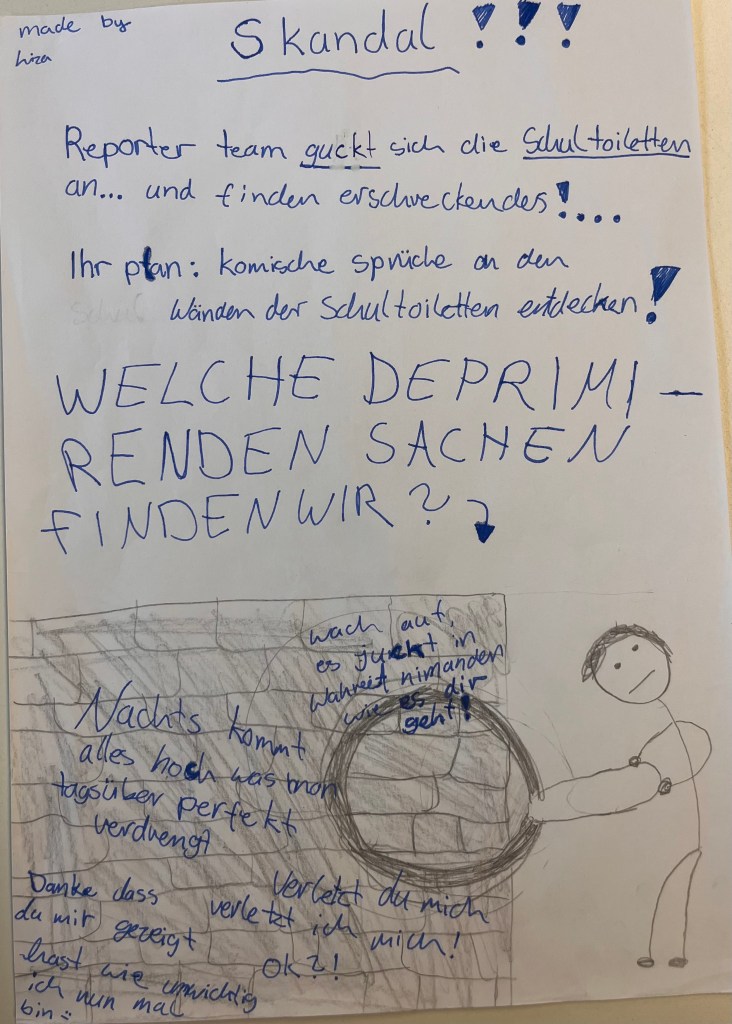 made by
Skandal !!!
Reporter team guckt sich die Schultoiletten
an... und finden erschreckendes!....
Ihr plan: komische sprüche an den
Wänden der Schultoiletten entdecken!
WELCHE DEPRIMI-
RENDEN SACHEN
FINDEN WIR?
wach auf,
es juckt in
Wahreit nimanden
wie es dir
geht!
Nachts kommt
alles hoch was man
tagsüber perfekt
verdrengt
Danke dass
du mir gezeigt
hast wie unwichtig
ich nun mal
bin:
Verletzt du mich
verletzt ich mich!
OK?!